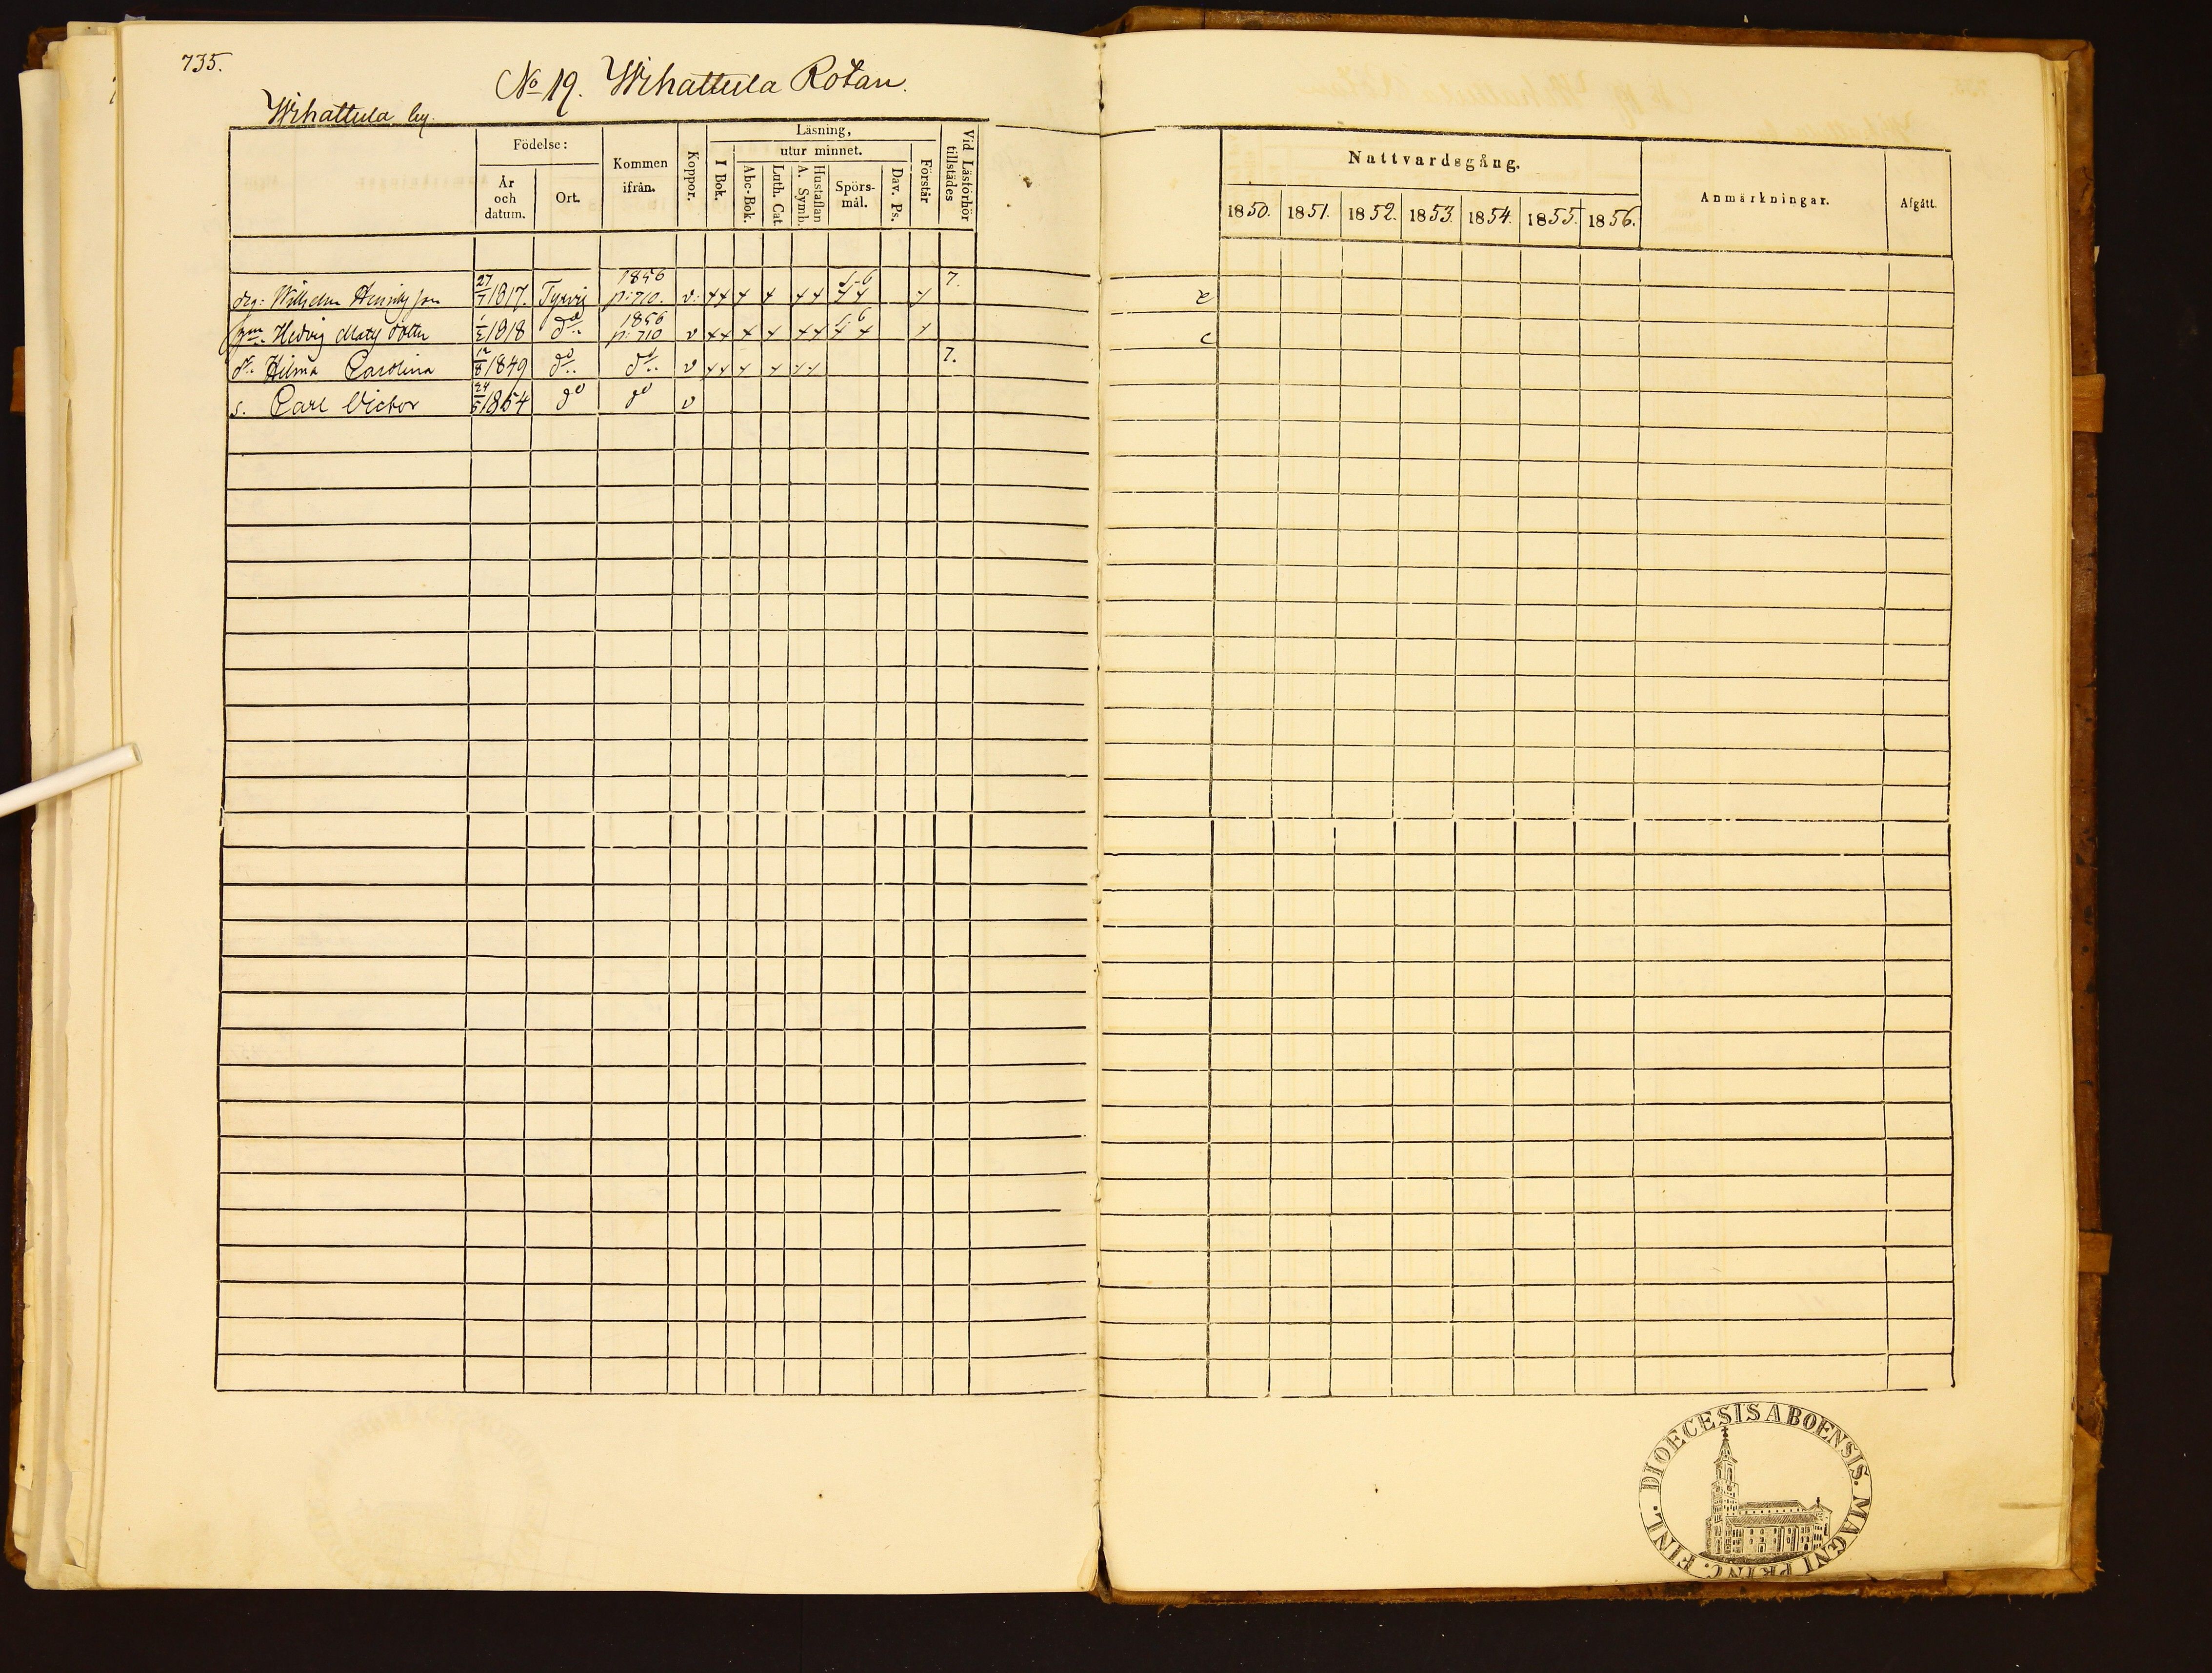 735.
No 19. Wihattula Rotan.
Wihattula by.
Födelse: Kommen ifrån. Koppor. Läsning, Vid Läsförhör tillstädes
År och datum. Ort. I Bok. utur minnet. Förstår
Abc-Bok. Luth. Cat. Hustaflan A. Symb. Spörs-mål. Dav. Ps.
Nattvardsgång. Anmärkningar. Afgått.
1850. 1851. 1852. 1853. 1854. 1855. 1856.
drg: Wilhelm Henriksson 27/7 1817. Tyrvis 1856 p: 710. v: 7.
Hedvig Matsdotter 1/2 1818 do 1856 p: 710 v c
dr. Hilma Carolina 12/8 1849 do do v 7.
s. Carl Victor 24/5 1854 do do v
DIOECESIS ABOENSIS. MAGNI PRINC. FINL.